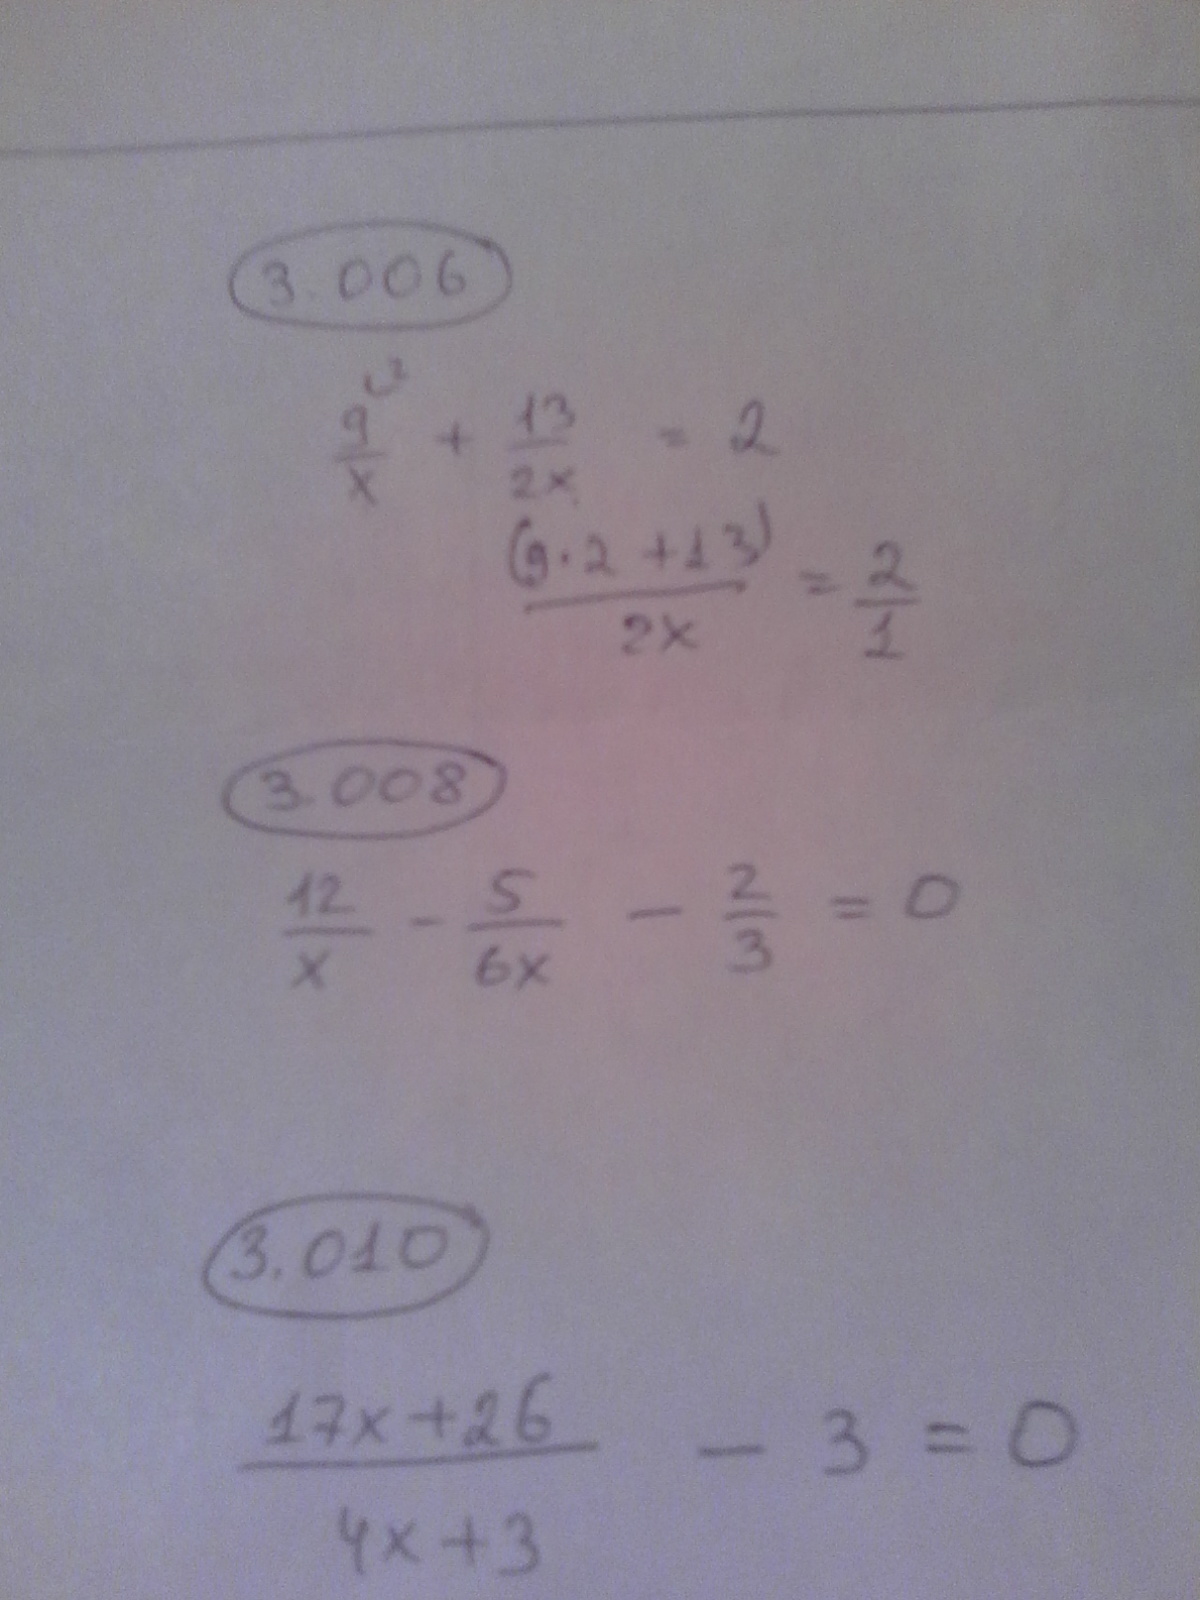 3.006
9/x + 13/2x = 2
(9·2+13)/2x = 2/1
3.008
12/x - 5/6x - 2/3 = 0
3.010
17x+26/4x+3 - 3 = 0